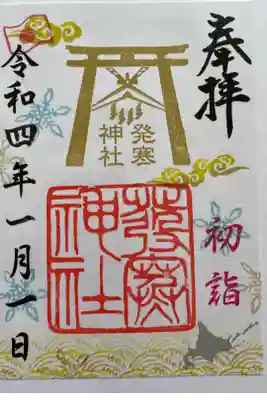 奉拝
初詣
発寒
神社
発寒
神社
令和四年一月一日